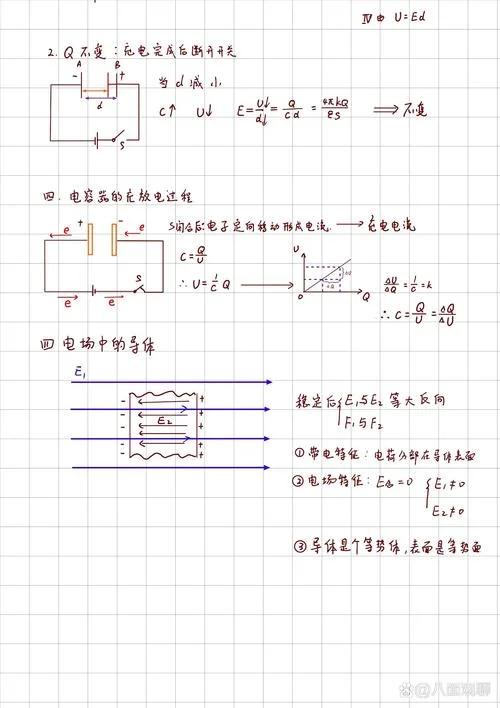 Ⅳ由 U=Ed
2. Q 不变：充电完成后断开开关
A B
- +
d
S
当 d 减小
C↑ U↓ E=U↓/d↓=Q/Cd=4πkQ/εS ⟹不变
四. 电容器的充放电过程
e + - e
e e S
S闭合后:电子定向移动形成电流 ⟶充电电流
C=Q/U
∴ U=1/C Q ⟶
U
ΔU
ΔQ
O Q
ΔU/ΔQ=1/C=k
∴ C=Q/U=ΔQ/ΔU
四 电场中的导体
E₁
E₂
- - - - -
+ + + + +
稳定后{E₁与E₂ 等大反向
F₁与F₂
①带电特征：电荷分部在导体表面
②电场特征：E合=0 {E₁≠0
E₂≠0
③导体是个等势体,表面是等势面
@八面观聊